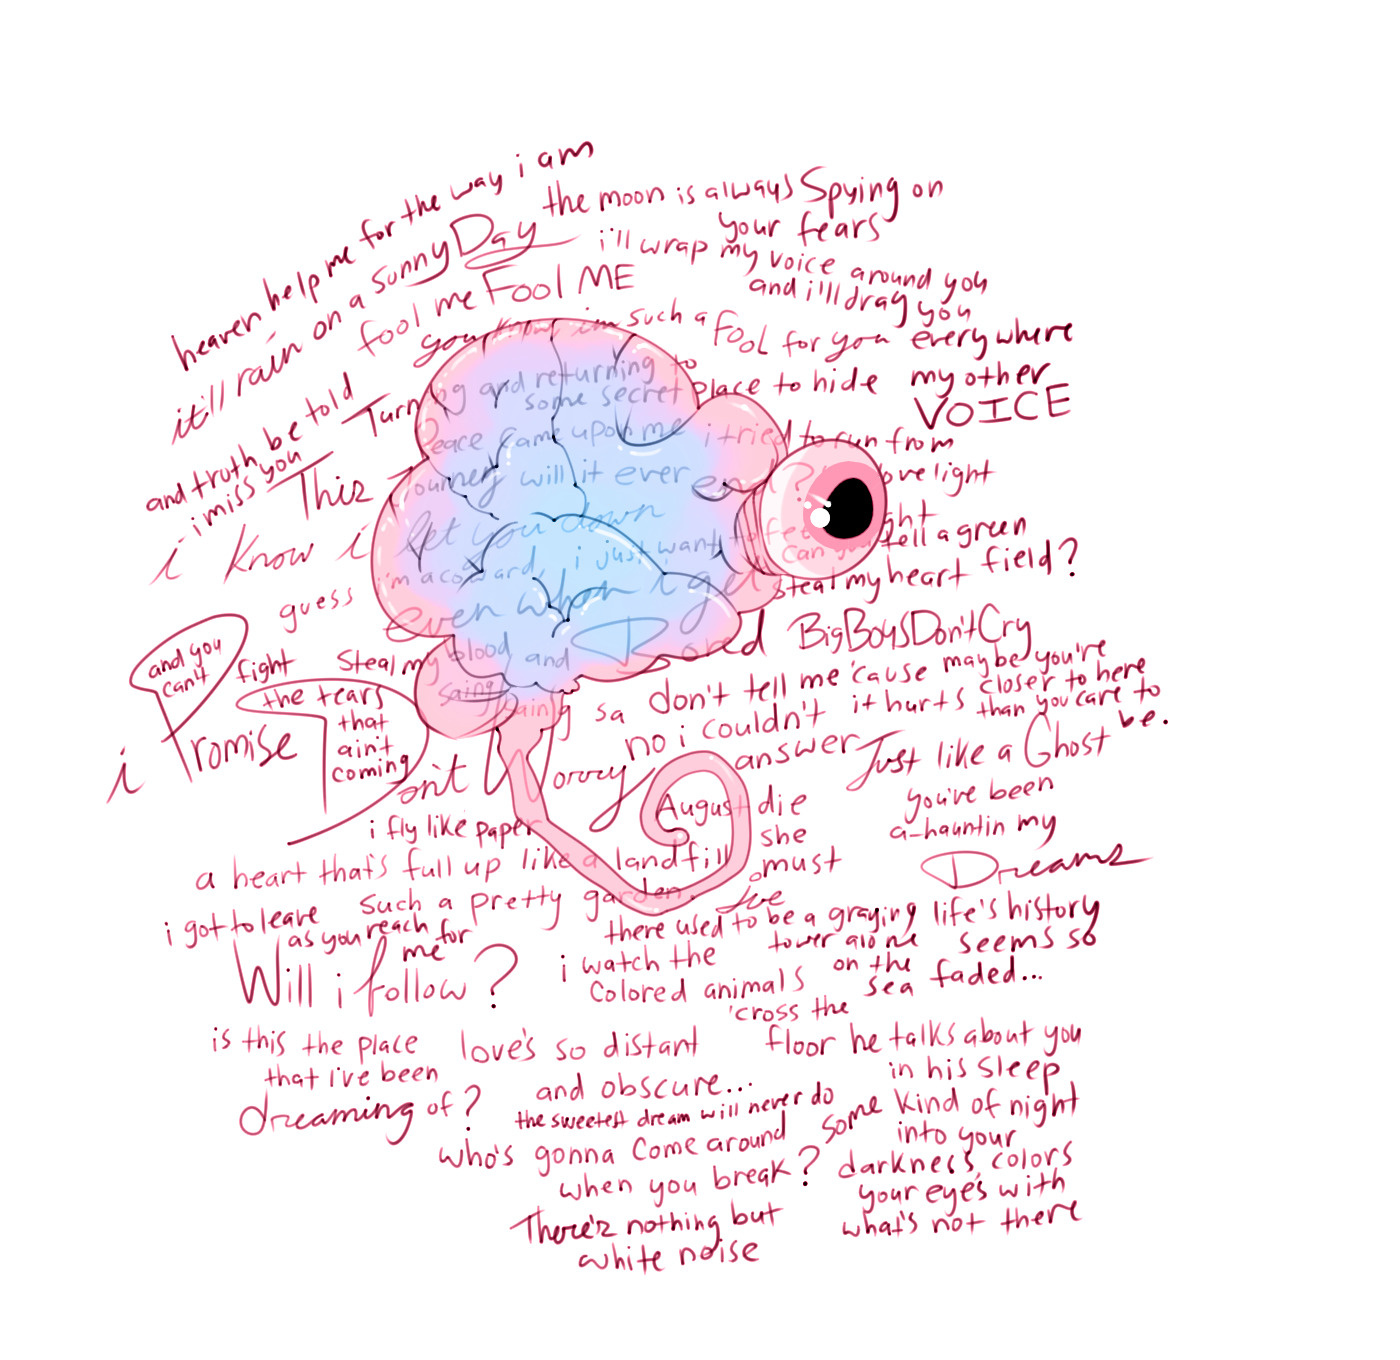 heaven help me for the way i am
the moon is always Spying on
your fears
it'll rain on a sunny Day
i'll wrap my voice around you
and i'll drag you
everywhere
fool me Fool ME
you know i'm such a Fool for you
my other
VOICE
and truth be told
i miss you
Turning and returning to
some secret place to hide
Peace came upon me
i tried to run from
love light
This journey will it ever end?
i know i let you down
can you tell a green
field?
guess i'm a coward, i just want to feel
steal my heart
even when i get Bored
BigBoysDon'tCry
and you
can't
fight
the tears
that
ain't
coming
Steal my blood and
saing saing sa
don't tell me 'cause maybe you're
closer to here
than you care to
be.
it hurts
no i couldn't
answer
i Promise
Don't Worry
Just like a Ghost
you've been
a-hauntin my
Dreams
August die
she
must
i fly like paper
a heart that's full up like a landfill
such a pretty garden
i got to leave
as you reach for
me
Will i follow?
there used to be a graying
tower alone
on the
sea
life's history
seems so
faded...
i watch the
Colored animals
'cross the
floor he talks about you
in his sleep
is this the place
that i've been
dreaming of?
love's so distant
and obscure...
the sweetest dream will never do
some kind of night
into your
darkness, colors
your eye's with
what's not there
who's gonna come around
when you break?
There'z nothing but
white noise